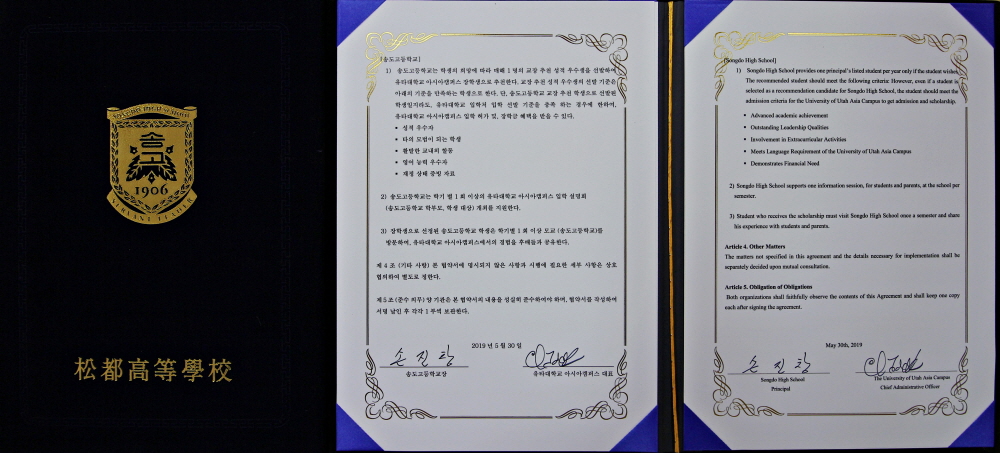 SONGDO HIGH SCHOOL
송고
1906
SERVANT LEADER
松都高等學校
[송도고등학교]
1) 송도고등학교는 학생의 희망에 따라 매해 1 명의 교장 추천 성적 우수생을 선발하여
유타대학교 아시아캠퍼스 장학생으로 추천한다. 교장 추천 성적 우수생의 선발 기준은
아래의 기준을 만족하는 학생으로 한다. 단, 송도고등학교 교장 추천 학생으로 선발된
학생일지라도, 유타대학교 입학처 입학 선발 기준을 충족 하는 경우에 한하여,
유타대학교 아시아캠퍼스 입학 허가 및, 장학금 혜택을 받을 수 있다.
• 성적 우수자
• 타의 모범이 되는 학생
• 활발한 교내외 활동
• 영어 능력 우수자
• 재정 상태 증빙 자료
2) 송도고등학교는 학기 별 1 회 이상의 유타대학교 아시아캠퍼스 입학 설명회
(송도고등학교 학부모, 학생 대상) 개최를 지원한다.
3) 장학생으로 선정된 송도고등학교 학생은 학기별 1 회 이상 모교 (송도고등학교)를
방문하여, 유타대학교 아시아캠퍼스에서의 경험을 후배들과 공유한다.
제 4 조 (기타 사항) 본 협약서에 명시되지 않은 사항과 시행에 필요한 세부 사항은 상호
협의하여 별도로 정한다.
제 5 조 (준수 의무) 양 기관은 본 협약서의 내용을 성실히 준수하여야 하며, 협약서를 작성하여
서명 날인 후 각각 1 부씩 보관한다.
2019 년 5 월 30 일
손 진 창
송도고등학교장
유타대학교 아시아캠퍼스 대표
[Songdo High School]
1) Songdo High School provides one principal's listed student per year only if the student wishes.
The recommended student should meet the following criteria: However, even if a student is
selected as a recommendation candidate for Songdo High School, the student should meet the
admission criteria for the University of Utah Asia Campus to get admission and scholarship.
• Advanced academic achievement
• Outstanding Leadership Qualities
• Involvement in Extracurricular Activities
• Meets Language Requirement of the University of Utah Asia Campus
• Demonstrates Financial Need
2) Songdo High School supports one information session, for students and parents, at the school per
semester.
3) Student who receives the scholarship must visit Songdo High School once a semester and share
his experience with students and parents.
Article 4. Other Matters
The matters not specified in this agreement and the details necessary for implementation shall be
separately decided upon mutual consultation.
Article 5. Obligation of Obligations
Both organizations shall faithfully observe the contents of this Agreement and shall keep one copy
each after signing the agreement.
May 30th, 2019
손 진 창
Songdo High School
Principal
The University of Utah Asia Campus
Chief Administrative Officer